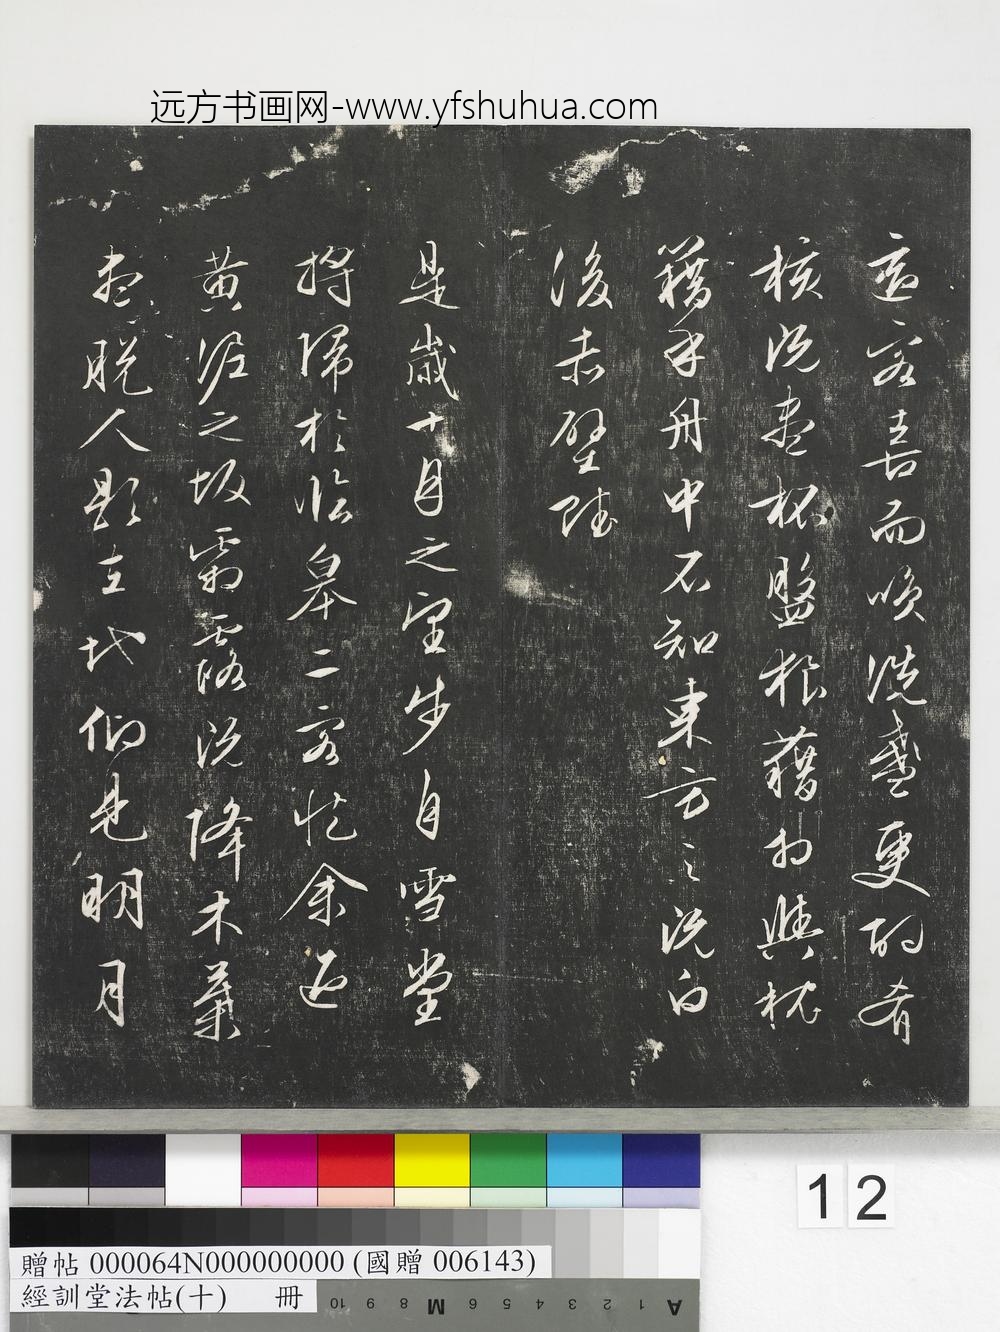 远方书画网-www.yfshuhua.com
適客喜而咲洗盞更酌肴
核既盡杯盤狼藉相與枕
藉乎舟中不知東方之既白
後赤壁賦
是歲十月之望步自雪堂
將歸於臨皋二客從余過
黃泥之坂霜露既降木葉
盡脫人影在地仰見明月
12
贈帖 000064N000000000 (國贈 006143)
經訓堂法帖(十) 冊
10 9 8 M 6 5 4 3 2 1 A